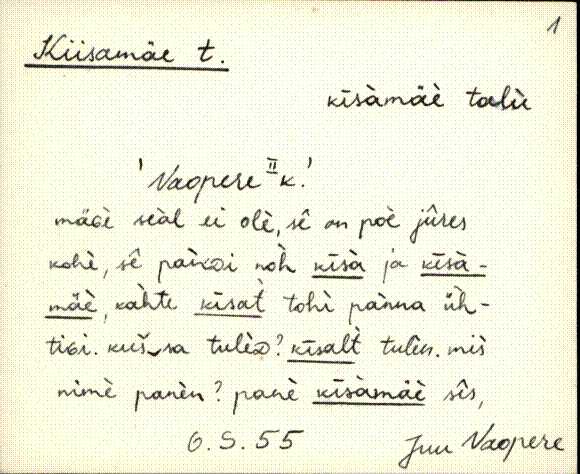 1
Kiisamäe t.
kīsàmäè talù
'Vaopere II k.'
mäGè seàl ei olè, sê on poè jûres
kohè, sê pàǹDi nòh kīsà ja kīsà-
mäè, kàhte kīsat̀ tohì pànna üh-
tiGi. kuš‿sa tulèD? kīsalt̀ tulèn. mis̀
nimè panèn? panè kīsàmäè sîs,
6.S.55 Juu Vaopere